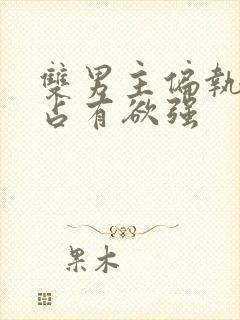 雙男主偏執
占有欲强
果木